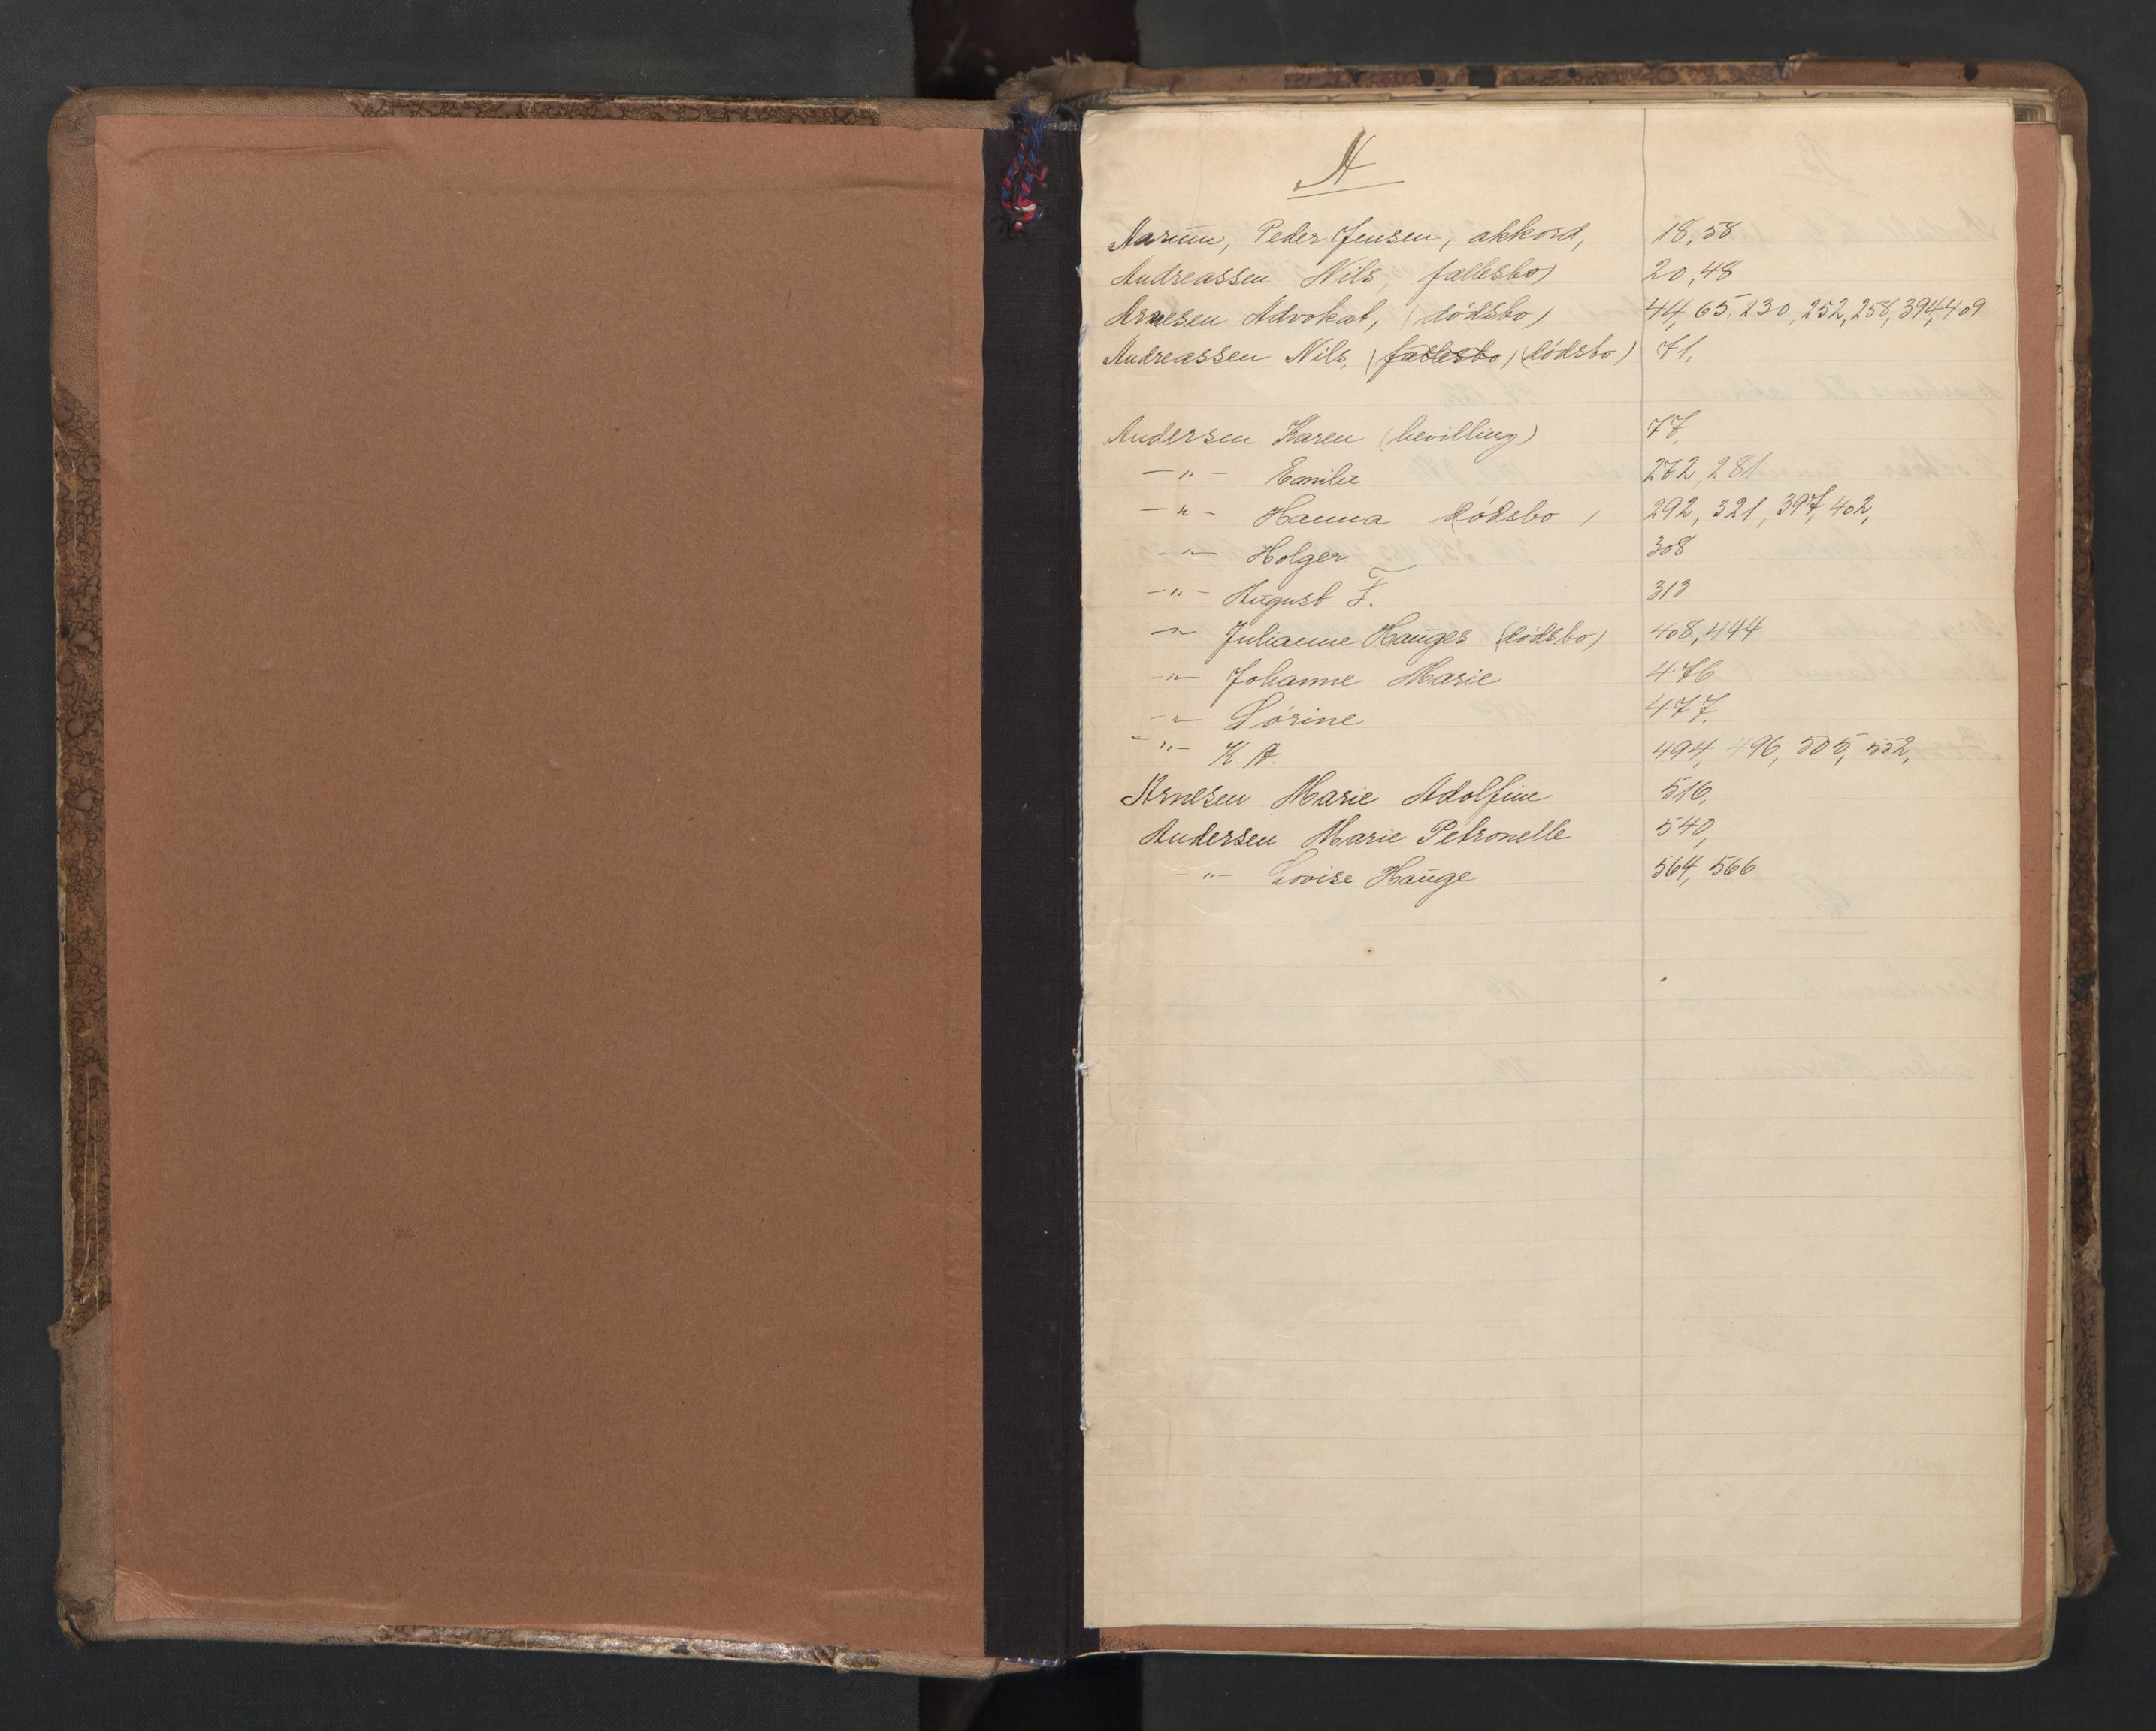 A
Aarum, Peder Jensen, akkord, 18, 58
Andreassen Nils, fællesbo) 20, 48
Arnesen Advokat, (dödsbo) 44, 65, 230, 252, 258, 394, 409
Andreassen Nils, (fællesbo) (dödsbo) 71,
Andersen Karen (bevilling) 77,
—"— Emilie 272, 281
—"— Hanna (dödsbo) 292, 321, 397, 402,
—"— Holger 308
—"— August F. 313
—"— Julianne Hauges (dödsbo) 408, 444
—"— Johanne Marie 476
—"— Sörine 477.
—"— K. A. 494, 496, 505, 552,
Arnesen Marie Adolfine 516,
Andersen Marie Petronelle 540,
—"— Lovise Hauge 564, 566